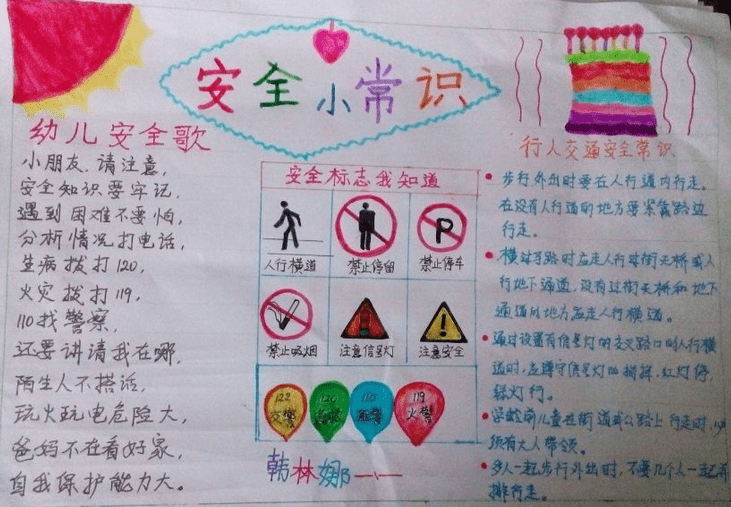 安全小常识
幼儿安全歌
小朋友,请注意,
安全知识要牢记,
遇到困难不要怕,
分析情况打电话,
生病拨打120,
火灾拨打119,
110找警察,
还要讲请我在哪,
陌生人不搭话,
玩火玩电危险大,
爸妈不在看好家,
自我保护能力大。
安全标志我知道
人行横道
禁止停留
P
禁止停车
禁止吸烟
注意信号灯
注意安全
122
交警
120
急救
110
匪警
119
火警
韩林娜
行人交通安全常识
步行外出时要在人行道内行走。
在没有人行道的地方要紧靠路边
行走。
横过马路时应走人行过街天桥或人
行地下通道,没有过街天桥和地下
通道的地方应走人行横道。
通过设置有信号灯的交叉路口的人行横
道时,应遵守信号灯的指挥,红灯停,
绿灯行。
学龄前儿童在街道或公路上行走时,
须有大人带领。
多人一起步行外出时,不要几个人一起并
排行走。